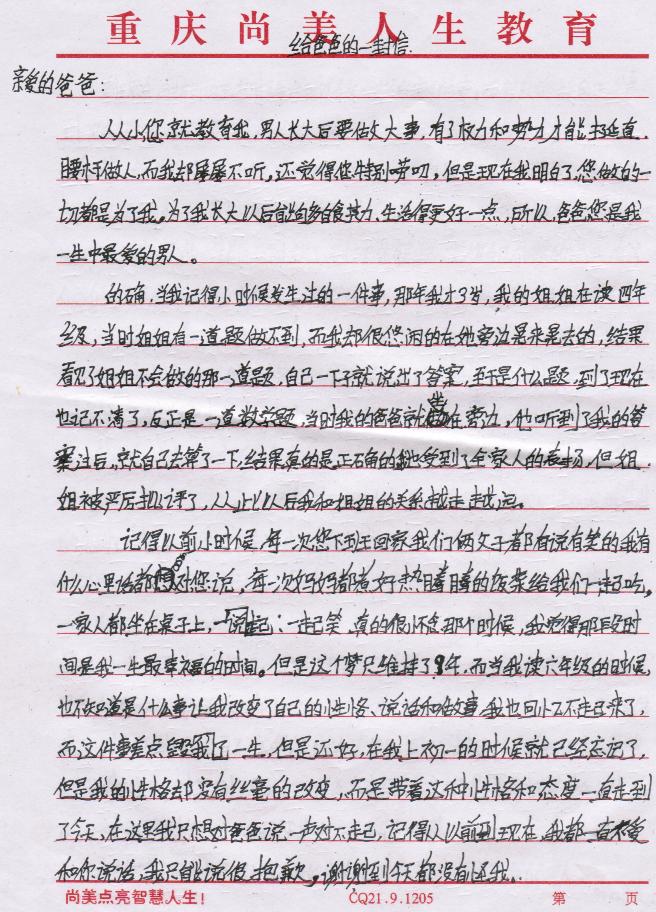 重庆尚美人生教育
给爸爸的一封信.
亲爱的爸爸：
从小您就教育我，男人长大后要做大事，有了权力和势力才能挺直
腰杆做人，而我却屡屡不听，还觉得您特别唠叨，但是现在我明白了，您做的一
切都是为了我。为了我长大以后能够自食其力、生活得更好一点，所以，爸爸您是我
一生中最爱的男人。
的确，当我记得小时候发生过的一件事，那年我才3岁，我的姐姐在读四年
级，当时姐姐有一道题做不到，而我却很悠闲的在她旁边晃来晃去的，结果
看见了姐姐不会做的那一道题，自己一下子就说出了答案，至于是什么题，到了现在
也记不清了，反正是一道数学题，当时我的爸爸就坐在旁边，他听到了我的答
案过后，就自己去算了一下，结果真的是正确的，我也受到了全家人的表扬，但姐
姐被严厉批评了，从此以后我和姐姐的关系越走越远。
记得以前小时候，每一次您下班回家我们俩父子都有说有笑的我有
什么心里话都想对您说，每一次妈妈都煮好热腾腾的饭菜给我们一起吃，
一家人都坐在桌子上，一起说；一起笑，真的很怀念那个时候，我觉得那段时
间是我一生最幸福的时间。但是这个梦只维持了9年，而当我读六年级的时候，
也不知道是什么事让我改变了自己的性格、说话和做事，我也回忆不起来了，
而这件事差点毁我了一生，但是还好，在我上初一的时候就已经忘记了，
但是我的性格却没有丝毫的改变，而是带着这种性格和态度一直走到
了今天，在这里我只想对爸爸说一声对不起，记得从以前到现在，我都一直不爱
和你说话，我只能说很抱歉，谢谢到今天都没有怪我。
尚美点亮智慧人生！ CQ21.9.1205 第 页